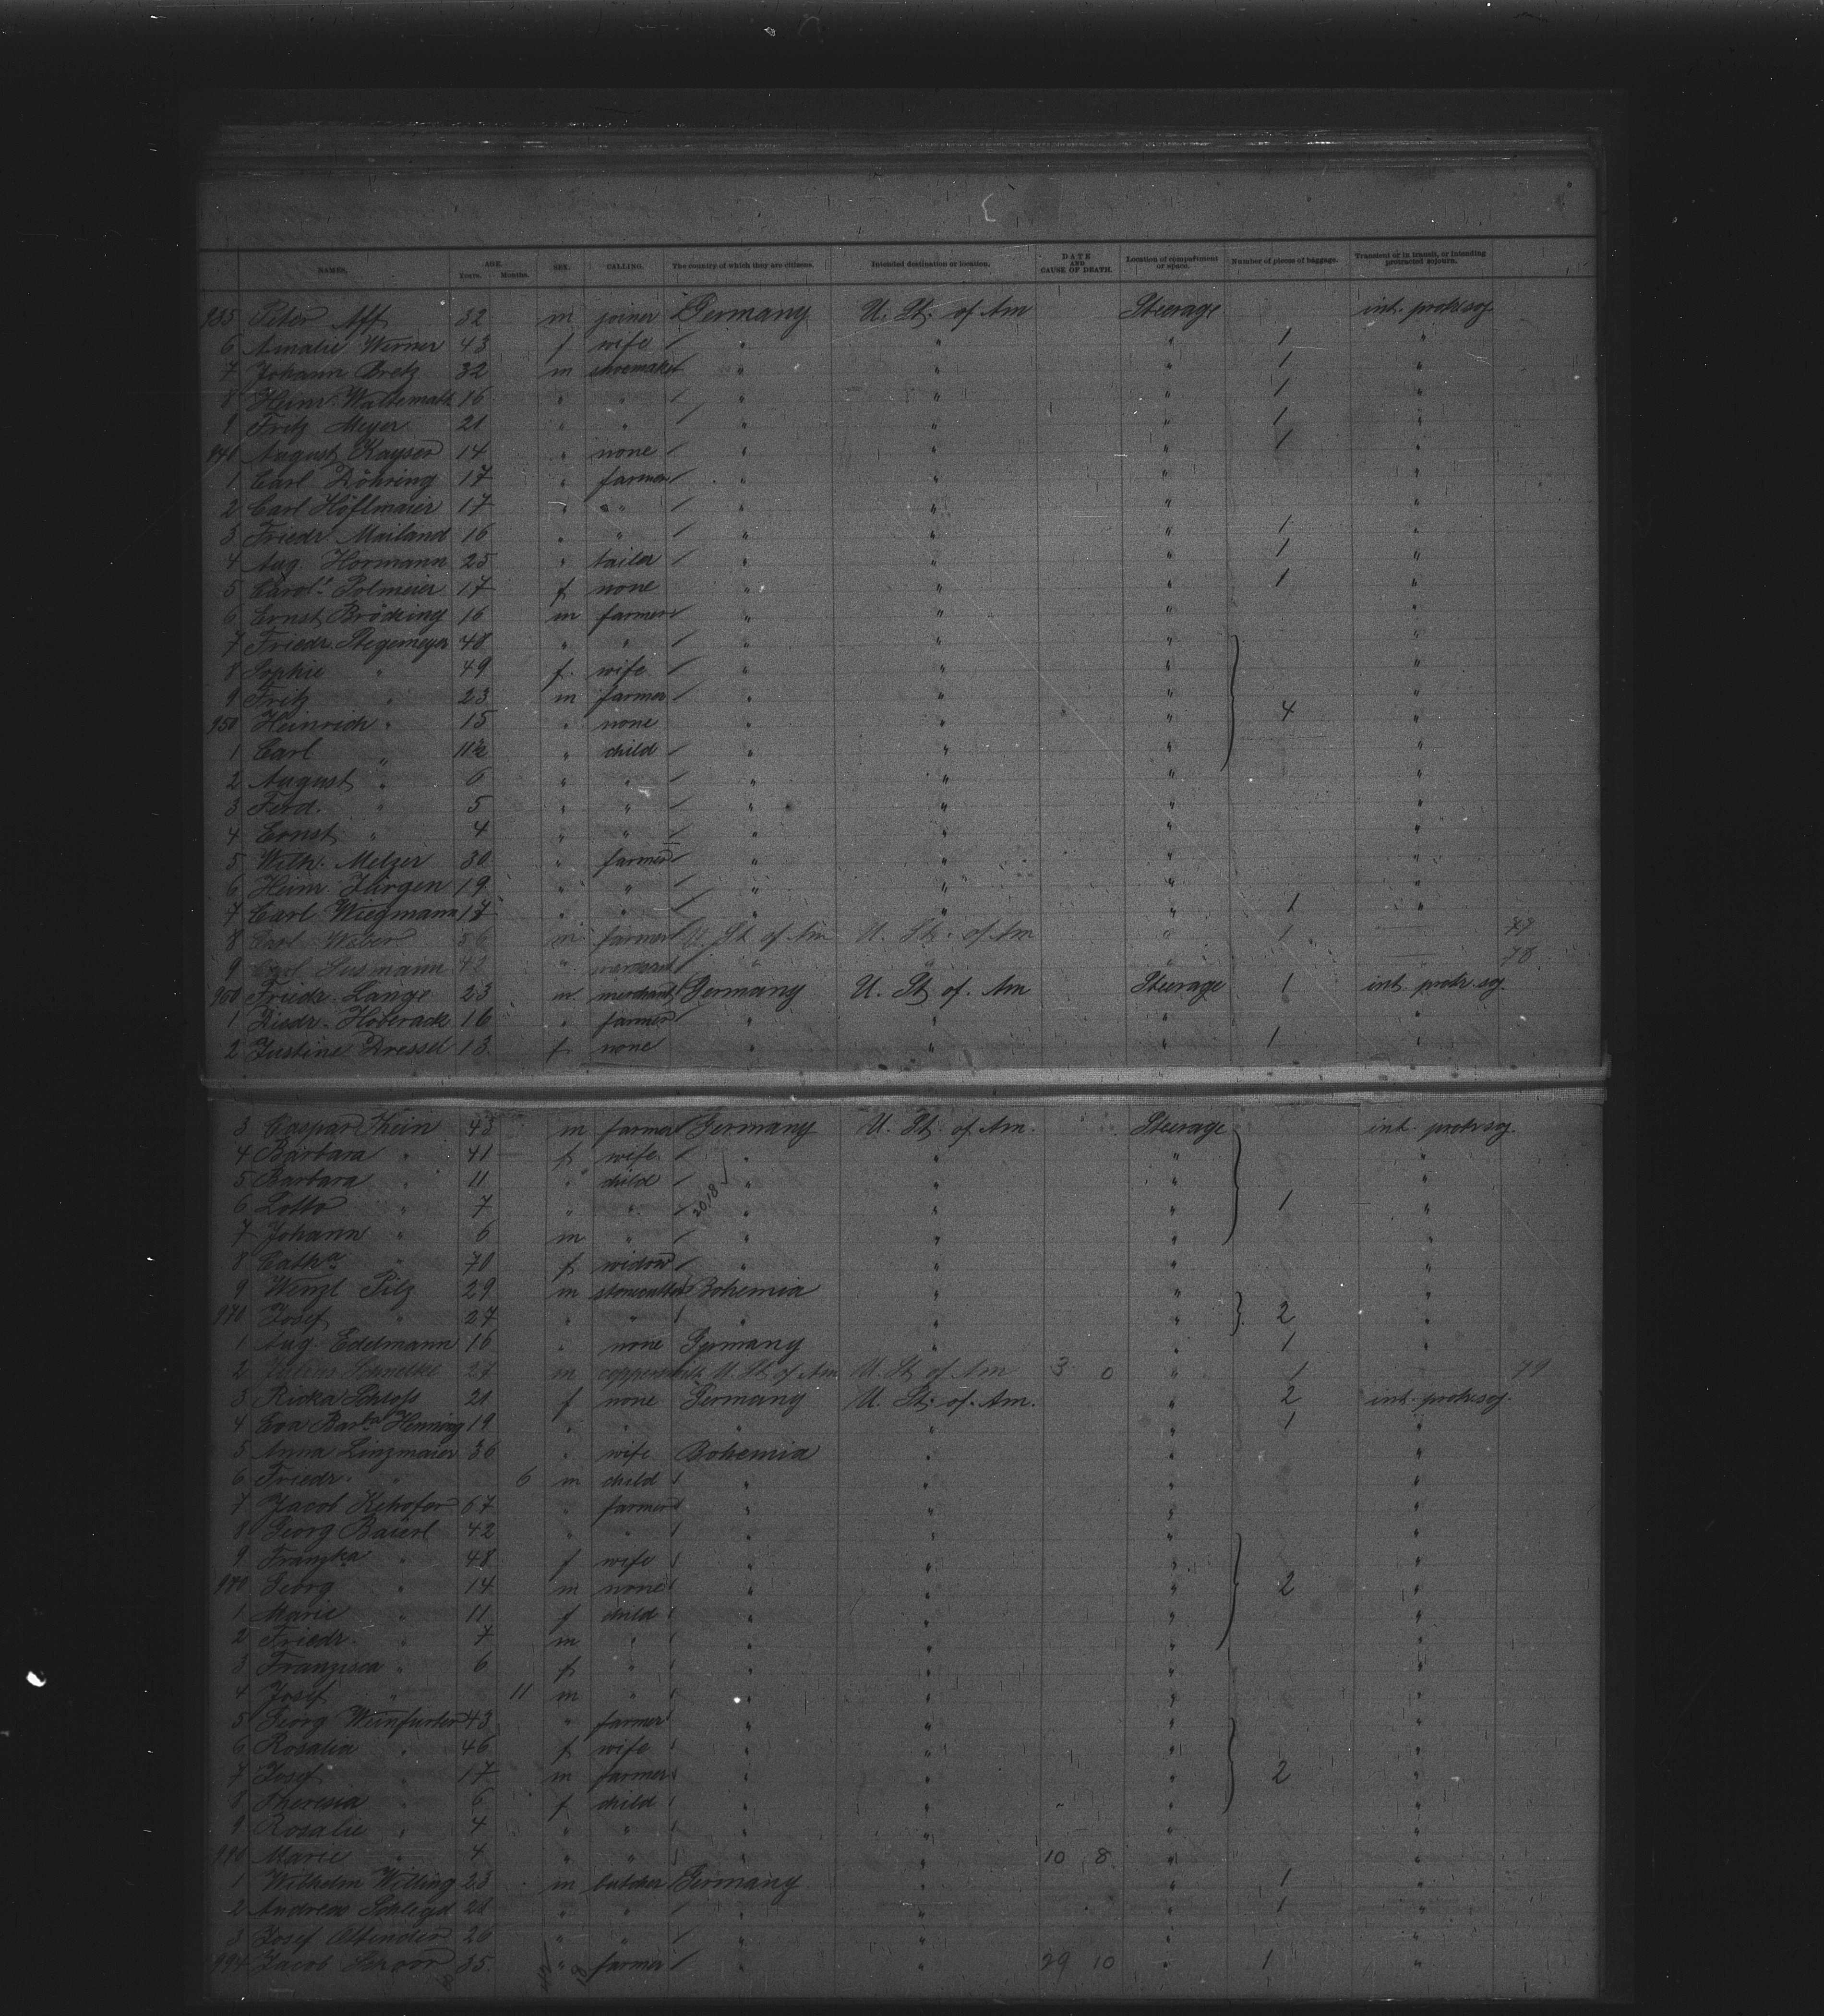 NAMES. AGE. Years. Months. SEX. CALLING. The country of which they are citizens. Intended destination or location. DATE AND CAUSE OF DEATH. Location of compartment or space. Number of pieces of baggage. Transient or in transit, or intending protracted sojourn.
935 Peter Aff 32 m joiner Germany U. St. of Am Steerage int. protr. soj.
6 Amalie Werner 43 f wife / " " " 1 "
7 Johann Bretz 32 m shoemaker " " " 1 "
8 Heinr. Waltemath 16 " " / " " " 1 "
9 Fritz Meyer 21 " " / " " " 1 "
940 August Kayser 14 " none / " " " 1 "
1 Carl Döhring 17 " farmer / " " " "
2 Carl Höflmaier 17 " " / " " " "
3 Friedr. Mailand 16 " " / " " " 1 "
4 Aug. Hormann 25 " tailor / " " " 1 "
5 Carol. Polmeier 17 f none " " " 1 "
6 Ernst Brödring 16 m farmer / " " " "
7 Friedr. Stegemeyer 48 " " / " " " "
8 Sophie " 49 f. wife / " " " "
9 Fritz " 23 m farmer / " " " "
950 Heinrich " 15 " none " " " 4 "
1 Carl " 11½ " child / " " " "
2 August " 6 " " / " " " "
3 Ferd. " 5 " " / " " " "
4 Ernst " 4 " " / " " " "
5 Wilh. Melzer 30 " farmer / " " " "
6 Heinr. Jürgen 19 " " / " " " "
7 Carl Wiegmann 17 " " / " " " 1 "
8 Carl Weber 56 m farmer U. St. of Am U. St. of Am " 1
9 Carl Susmann " merchant / " " " 78
960 Friedr. Lange 23 m merchant Germany U. St. of. Am Steerage 1 int. protr. soj.
1 Diedr. Hoberack 16 " farmer / " " " "
2 Justine Dressel 13 f none " " " 1 "
3 Caspar Thein 43 m farmer Germany U. St. of Am. Steerage int. protr. soj.
4 Barbara " 41 f wife / " " " "
5 Barbara " 11 " child / " " " "
6 Lotto " 7 " " / 20,18 " " " 1 "
7 Johann " 6 m " / " " " "
8 Catha " 70 f widow / " " " "
9 Wenzl Pilz 29 m stonecutter Bohemia " " "
970 Josef " 27 " " / " " " 2 "
1 Aug. Edelmann 16 " none Germany " " 1 "
2 27 m coppersmith U. St. of Am U. St. of Am 3 0 " 1 79
3 Ricka Schloss 21 f none Germany U. St. of. Am. " 2 int. protr. soj.
4 Eva Barba Henning 19 " " " " " 1 "
5 Anna Linzmaier 36 " wife Bohemia " " "
6 Friedr. " 6 m child / " " " "
7 Jacob 67 " farmer / " " " "
8 Georg Baierl 42 " " / " " " "
9 Franzka " 48 f wife / " " " "
980 Georg " 14 m none / " " " 2 "
1 Marie " 11 f child / " " " "
2 Friedr. " 7 m " / " " " "
3 Franzisca " 6 f " / " " " "
4 Josef " 11 m " / " " " "
5 Georg Weinfurter 43 " farmer / " " " "
6 Rosalia " 46 f wife / " " " "
7 Josef " 17 m farmer / " " " 2 "
8 Theresia " 6 f child / " " " "
9 Rosalie " 4 " " " " " "
990 Marie " 4 " " / " " 10 8 " "
1 Wilhelm Witting 23 m butcher Germany " " 1 "
2 Andreas Schlegel 28 " " / " " " 1 "
3 Josef 26 " " / " " " "
994 Jacob 35 " farmer / " " 29 10 " 1 "